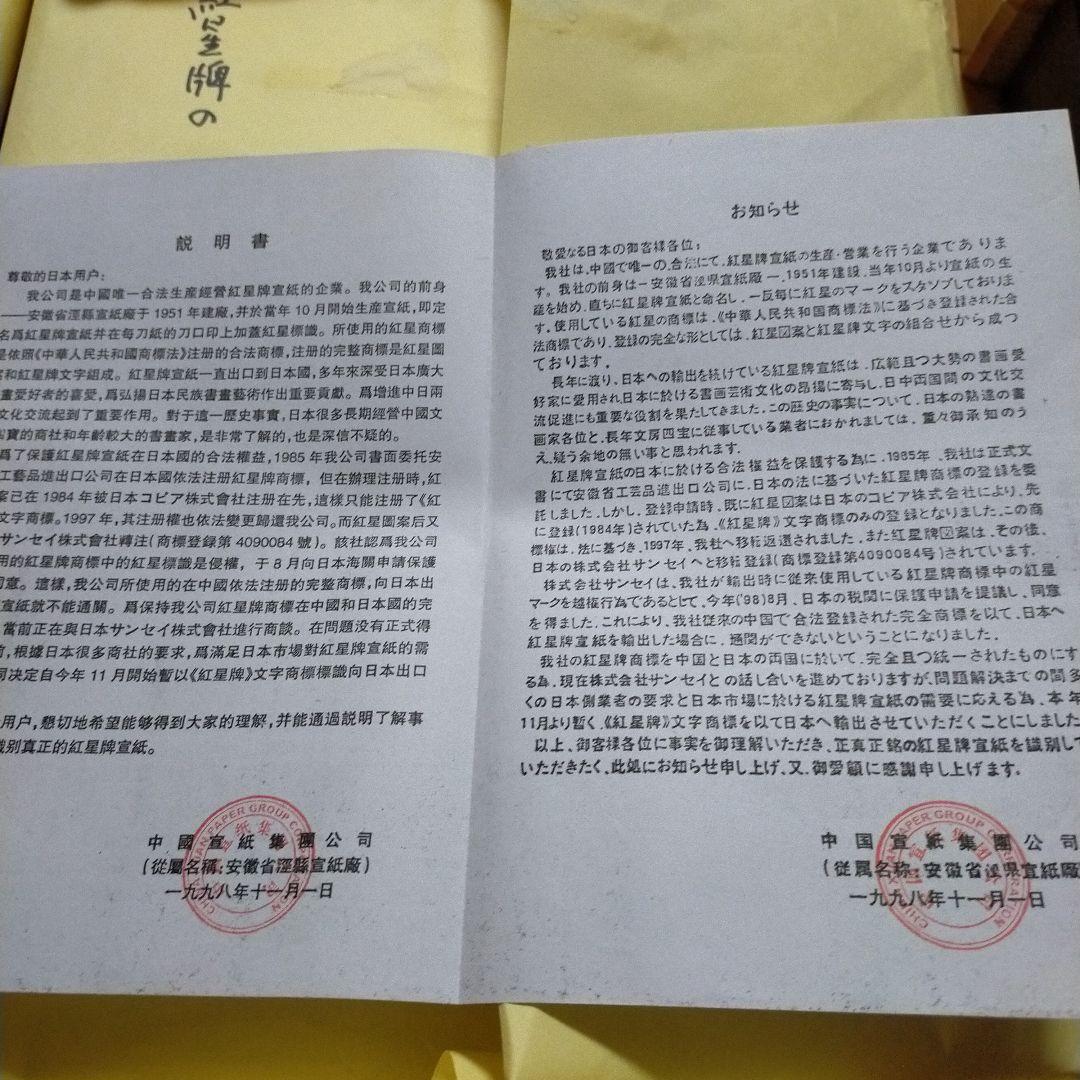 紅星牌の
説明書
尊敬的日本用户:
我公司是中國唯一合法生産經營紅星牌宣紙的企業。我公司的前身
——安徽省涇縣宣紙廠于1951年建廠,并於當年10月開始生産宣紙,即定
名爲紅星牌宣紙并在每刀紙的刀口印上加蓋紅星標識。所使用的紅星商標
是依照《中華人民共和國商標法》注册的合法商標,注册的完整商標是紅星圖
案和紅星牌文字組成。紅星牌宣紙一直出口到日本國,多年來深受日本廣大
畫愛好者的喜愛,爲弘揚日本民族書畫藝術作出重要貢獻。爲增進中日兩
文化交流起到了重要作用。對于這一歷史事實,日本很多長期經營中國文
寶的商社和年齡較大的書畫家,是非常了解的,也是深信不疑的。
爲了保護紅星牌宣紙在日本國的合法權益,1985年我公司書面委托安
工藝品進出口公司在日本國依法注册紅星牌商標,但在辦理注册時,紅
案已在1984年被日本コピア株式會社注册在先,這樣只能注册了《紅
文字商標。1997年,其注册權也依法變更歸還我公司。而紅星圖案后又
サンセイ株式會社轉注(商標登録第4090084號)。該社認爲我公司
用的紅星牌商標中的紅星標識是侵權,于8月向日本海關申請保護
同意。這樣,我公司所使用的在中國依法注册的完整商標,向日本出
宣紙就不能通關。爲保持我公司紅星牌商標在中國和日本國的完
當前正在與日本サンセイ株式會社進行商談。在問題没有正式得
前,根據日本很多商社的要求,爲滿足日本市場對紅星牌宣紙的需
司决定自今年11月開始暫以《紅星牌》文字商標標識向日本出口
用户,懇切地希望能够得到大家的理解,并能通過説明了解事
識别真正的紅星牌宣紙。
中國宣紙集團公司
(從屬名稱:安徽省涇縣宣紙廠)
一九九八年十一月一日
お知らせ
敬愛なる日本の御客様各位:
我社は、中國で唯一の、合法にて、紅星牌宣紙の生産・営業を行う企業でありま
す。我社の前身は一安徽省涇県宣紙廠一、1951年建設、当年10月より宣紙の生
産を始め、直ちに紅星牌宣紙と命名し、一反毎に紅星のマークをスタンプしておりま
す。使用している紅星の商標は、《中華人民共和国商標法》に基づき登録された合
法商標であり、登録の完全な形としては、紅星図案と紅星牌文字の組合せから成っ
ております。
長年に渡り、日本への輸出を続けている紅星牌宣紙は、広範且つ大勢の書画愛
好家に愛用され、日本に於ける書画芸術文化の昂揚に寄与し、日中両国間の文化交
流促進にも重要な役割を果たしてきました。この歴史の事実について、日本の熟達の書
画家各位と、長年文房四宝に従事している業者におかれましては、重々御承知のう
え、疑う余地の無い事と思われます。
紅星牌宣紙の日本に於ける合法権益を保護する為に、1985年、我社は正式文
書にて安徽省工芸品進出口公司に、日本の法に基づいた紅星牌商標の登録を委
託しました。しかし、登録申請時、既に紅星図案は日本のコピア株式会社により、先
に登録(1984年)されていた為、《紅星牌》文字商標のみの登録となりました。この商
標権は、法に基づき、1997年、我社へ移転返還されました。また紅星牌図案は、その後、
日本の株式会社サンセイへと移転登録(商標登録第4090084号)されています。
株式会社サンセイは、我社が輸出時に従来使用している紅星牌商標中の紅星
マークを越権行為であるとして、今年('98)8月、日本の税関に保護申請を提議し、同意
を得ました。これにより、我社従来の中国で合法登録された完全商標を以て、日本へ
紅星牌宣紙を輸出した場合に、通関ができないということになりました。
我社の紅星牌商標を中国と日本の両国に於いて、完全且つ統一されたものにす
る為、現在株式会社サンセイとの話し合いを進めておりますが、問題解決までの間多
くの日本側業者の要求と日本市場に於ける紅星牌宣紙の需要に応える為、本年
11月より暫く、《紅星牌》文字商標を以て日本へ輸出させていただくことにしました
以上、御客様各位に事実を御理解いただき、正真正銘の紅星牌宣紙を識別して
いただきたく、此処にお知らせ申し上げ、又、御愛顧に感謝申し上げます。
中国宣紙集團公司
(従属名称:安徽省涇県宣紙廠
一九九八年十一月一日